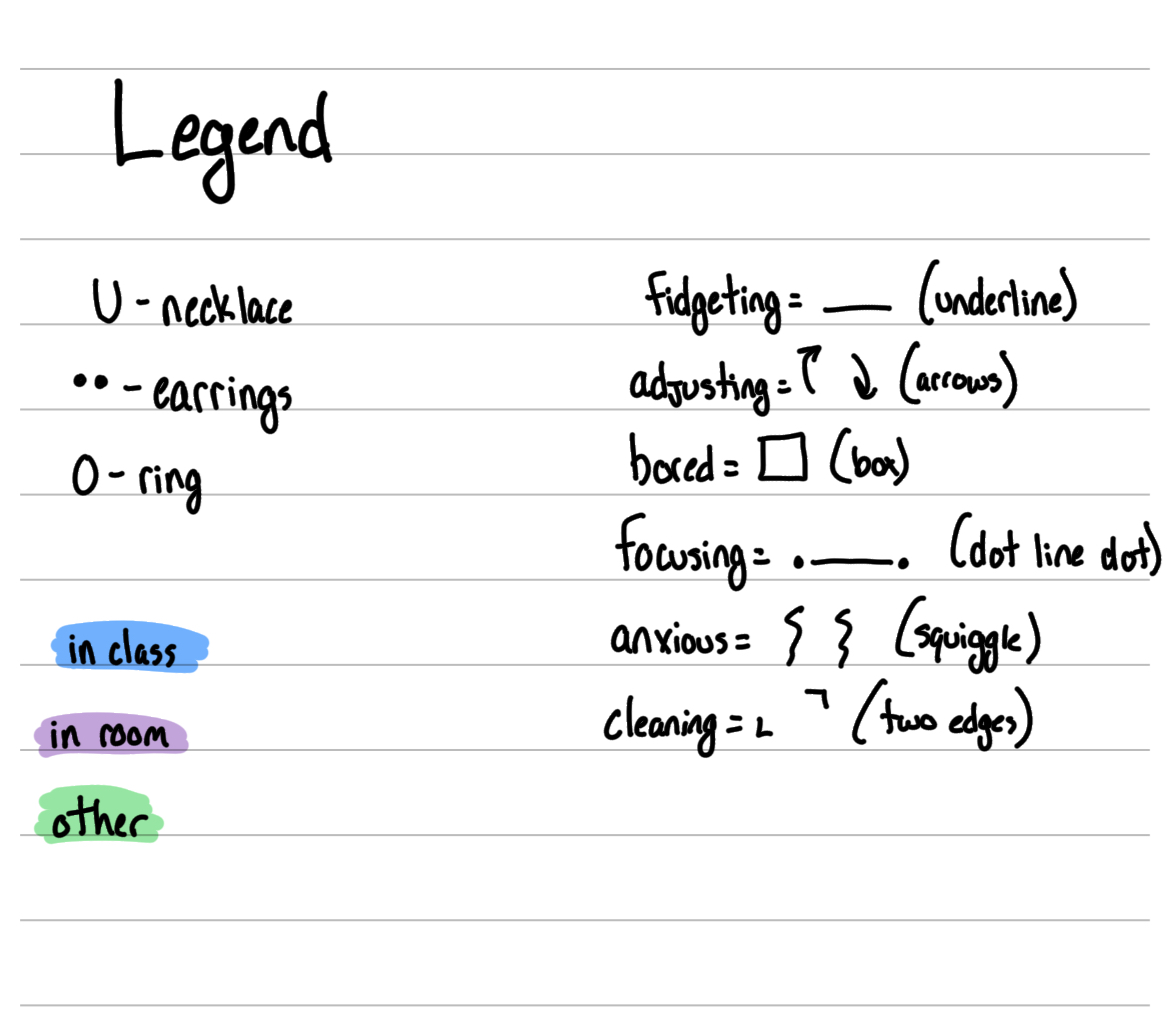 Legend
U - necklace
•• - earrings
O - ring
in class
in room
other
fidgeting = __ (underline)
adjusting = ↑ ↓ (arrows)
bored = □ (box)
focusing = .__. (dot line dot)
anxious = { { (squiggle)
cleaning = ∟ ㄱ (two edges)